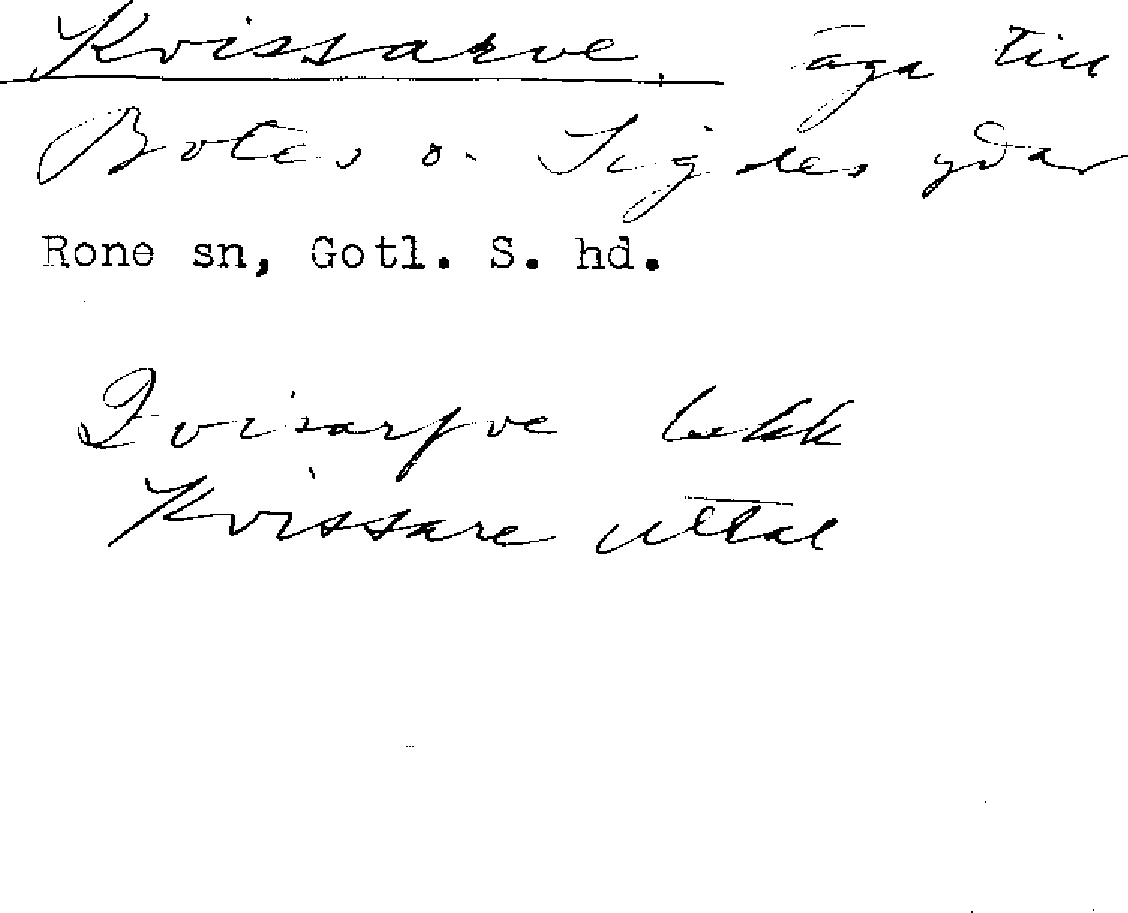 Kvissarve. äga till
Botes o. Sigdes gdar
Rone sn, Gotl. S. hd.
Qvisarfve bekk
Kvissare uttal